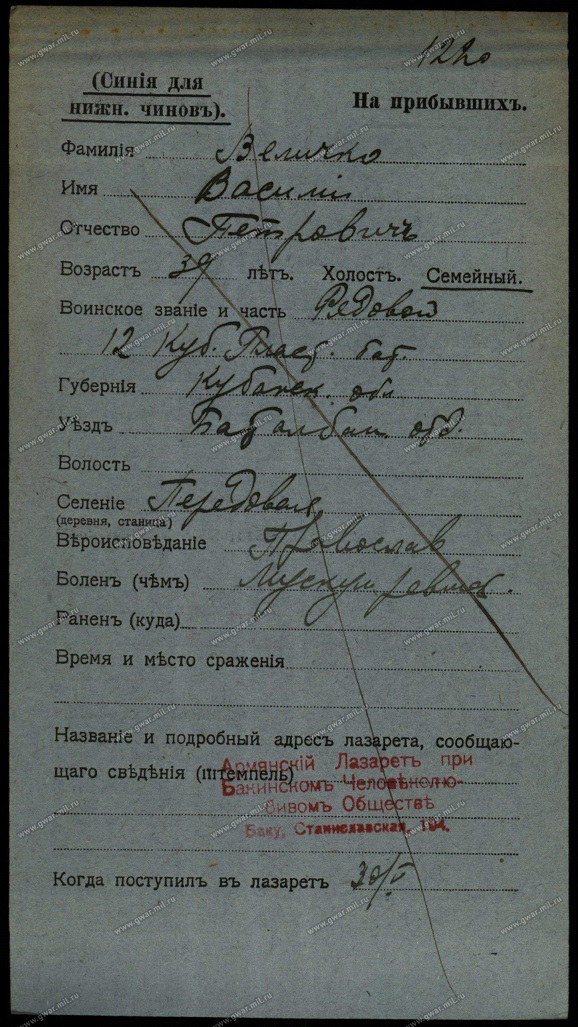 1220
(Синія для
нижн. чиновъ).
На прибывшихъ.
Фамилія Величко
Имя Василій
Отчество Петровичъ
Возрастъ 39 лѣтъ. Холостъ. Семейный.
Воинское званіе и часть Рядовой
12 Куб. Пласт. бат.
Губернія Кубанск. обл
Уѣздъ Баталпаш. отд.
Волость
Селеніе Передовая
(деревня, станица)
Вѣроисповѣданіе Православ
Боленъ (чѣмъ) Мускул ревмат.
Раненъ (куда)
Время и мѣсто сраженія
Названіе и подробный адресъ лазарета, сообщаю-
щаго свѣдѣнія (штемпель)
Армянскій Лазаретъ при
Бакинскомъ Человѣколю-
бивомъ Обществѣ
Баку, Станиславская, 194.
Когда поступилъ въ лазаретъ 30/V
www.gwar.mil.ru